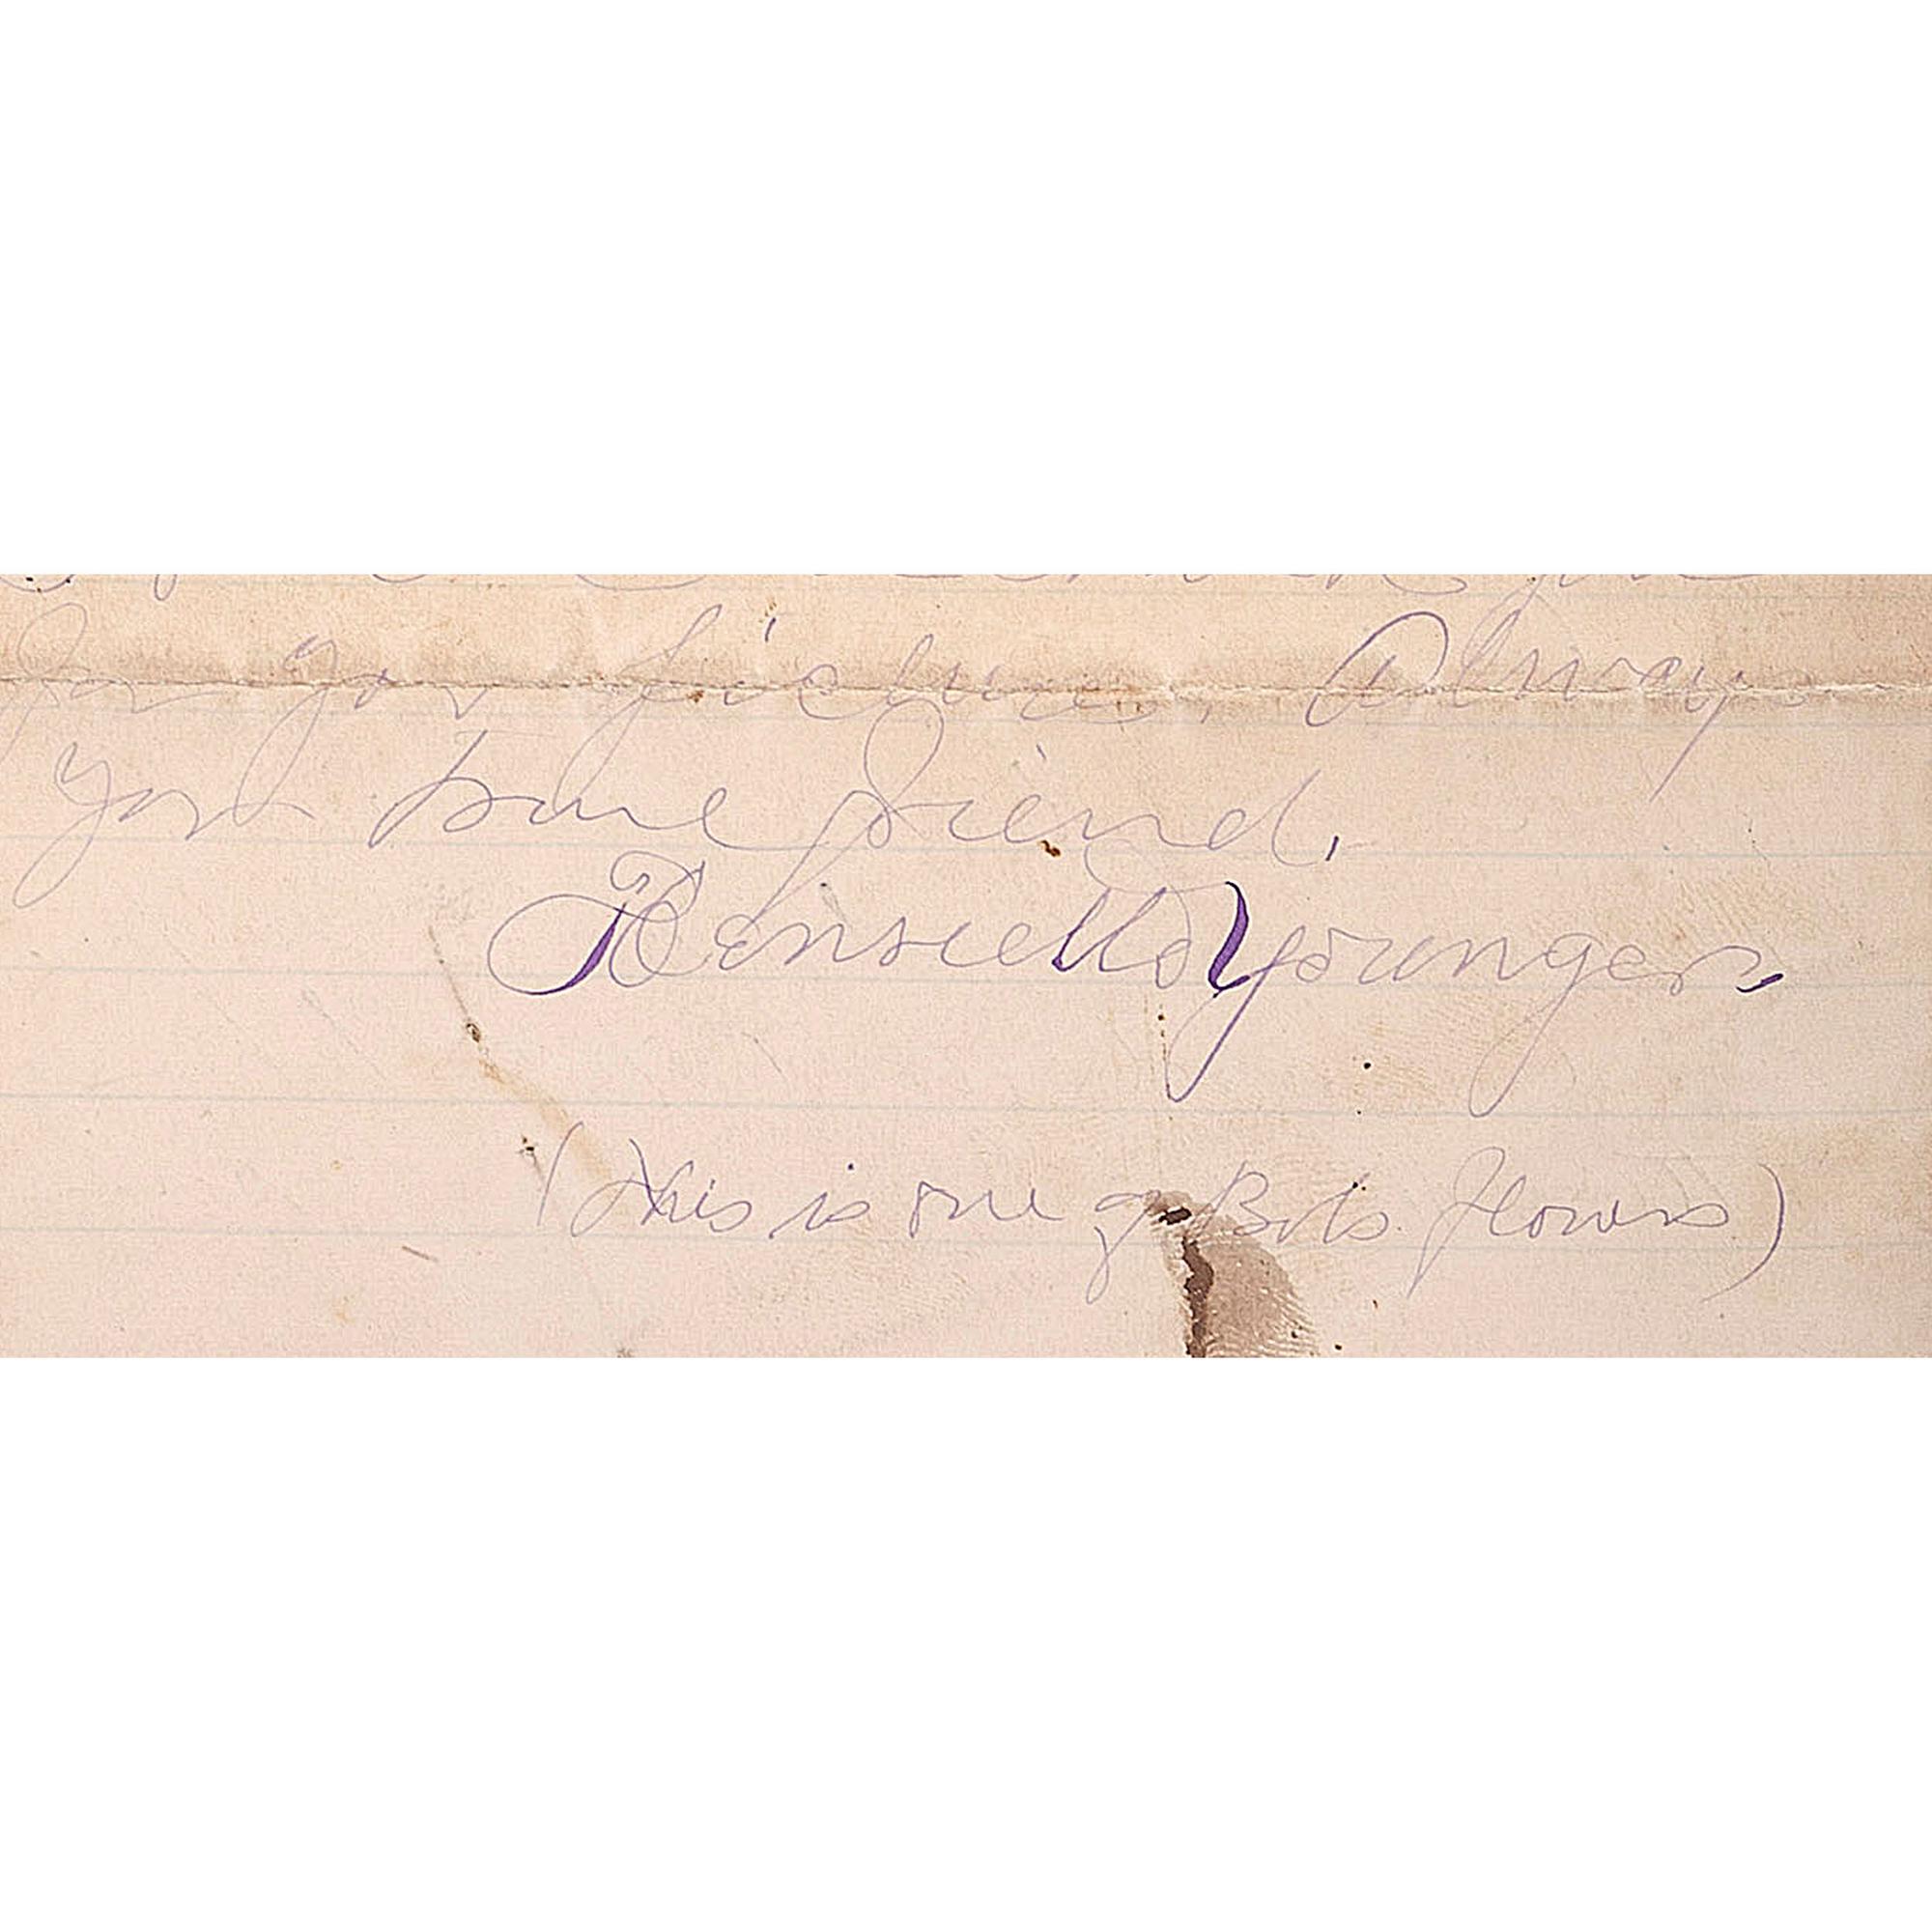 for your pictures. Always
your true friend.
Henrietta Younger.
(This is one of Bobs flowers)